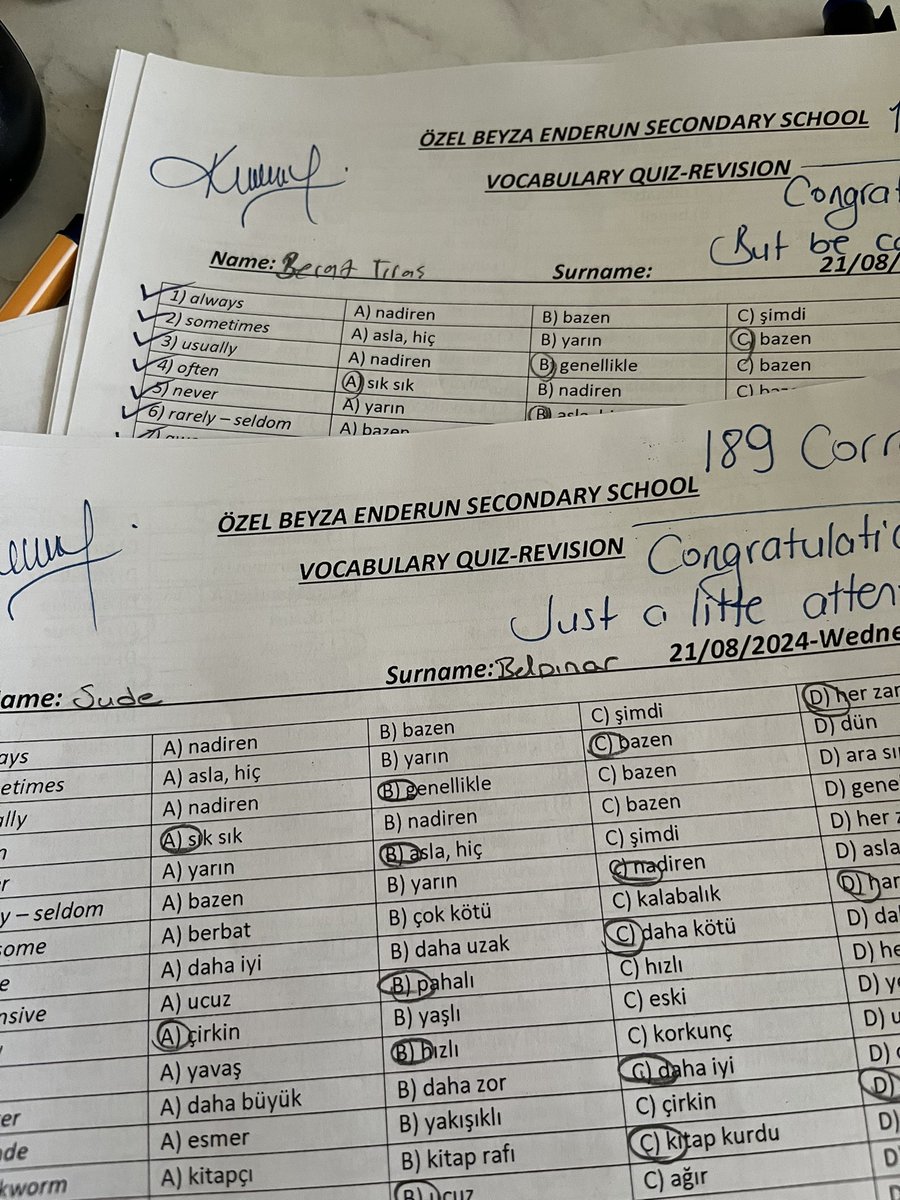 ÖZEL BEYZA ENDERUN SECONDARY SCHOOL
VOCABULARY QUIZ-REVISION
Congrat
But be
Name: Berat Tıras Surname: 21/08/
1) always A) nadiren B) bazen C) şimdi
2) sometimes A) asla, hiç B) yarın C) bazen
3) usually A) nadiren B) genellikle C) bazen
4) often A) sık sık B) nadiren
5) never A) yarın B)
6) rarely – seldom A) bazen
189 Corr
ÖZEL BEYZA ENDERUN SECONDARY SCHOOL
VOCABULARY QUIZ-REVISION Congratulati
Just a litte atten
ame: Sude Surname: Belpınar 21/08/2024-Wedne
ays A) nadiren B) bazen C) şimdi D) her zar
etimes A) asla, hiç B) yarın C) bazen D) dün
ally A) nadiren B) genellikle C) bazen D) ara sı
n A) sık sık B) nadiren C) bazen D) gene
er A) yarın B) asla, hiç C) şimdi D) her z
y – seldom A) bazen B) yarın C) nadiren D) asla
some A) berbat B) çok kötü C) kalabalık D) har
e A) daha iyi B) daha uzak C) daha kötü D) da
nsive A) ucuz B) pahalı C) hızlı D) he
A) çirkin B) yaşlı C) eski D) y
A) yavaş B) hızlı C) korkunç D) u
er A) daha büyük B) daha zor C) daha iyi D)
de A) esmer B) yakışıklı C) çirkin D)
kworm A) kitapçı B) kitap rafı C) kitap kurdu D)
B) ucuz C) ağır